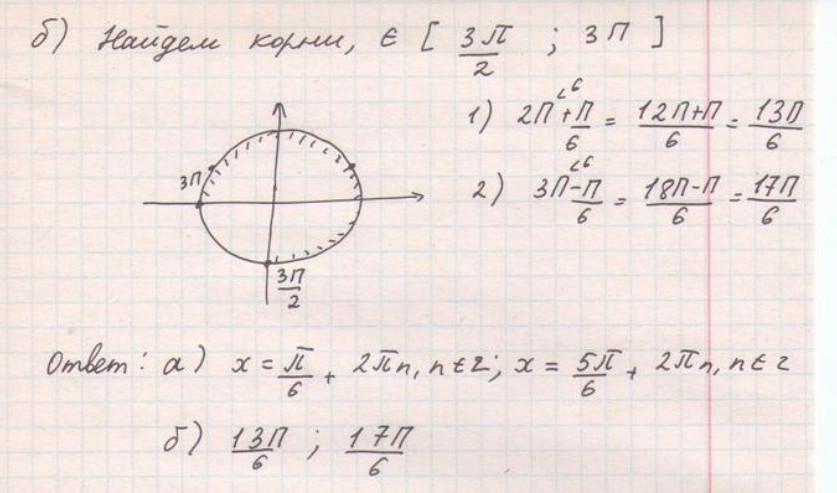 б) Найдем корни, ∈ [ 3π/2 ; 3π ]
1) 2π + π/6 = (12π+π)/6 = 13π/6
2) 3π - π/6 = (18π-π)/6 = 17π/6
3π
3π/2
Ответ: а) x = π/6 + 2πn, n ∈ z; x = 5π/6 + 2πn, n ∈ z
б) 13π/6 ; 17π/6